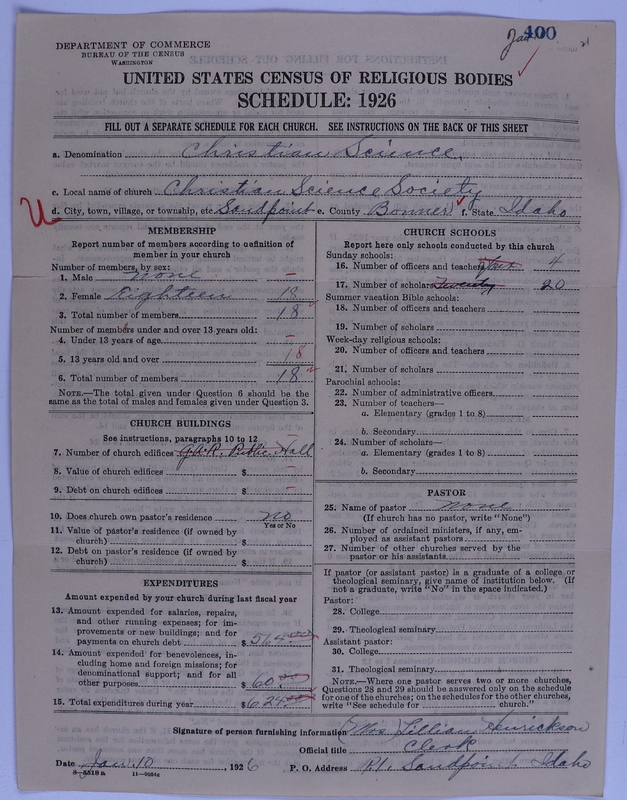 400
Jan
DEPARTMENT OF COMMERCE
BUREAU OF THE CENSUS
WASHINGTON
UNITED STATES CENSUS OF RELIGIOUS BODIES
SCHEDULE: 1926
FILL OUT A SEPARATE SCHEDULE FOR EACH CHURCH. SEE INSTRUCTIONS ON THE BACK OF THIS SHEET
a. Denomination Christian Science
c. Local name of church Christian Science Society
U d. City, town, village, or township, etc. Sandpoint e. County Bonner f. State Idaho
MEMBERSHIP
Report number of members according to definition of
member in your church
Number of members, by sex:
1. Male none –
2. Female Eighteen 18
3. Total number of members 18
Number of members under and over 13 years old:
4. Under 13 years of age –
5. 13 years old and over 18
6. Total number of members 18
NOTE.—The total given under Question 6 should be
same as the total of males and females given under Question 3.
CHURCH BUILDINGS
See instructions, paragraphs 10 to 12
7. Number of church edifices G.A.R. Public Hall –
8. Value of church edifices $ –
9. Debt on church edifices $ –
10. Does church own pastor's residence no
Yes or No
11. Value of pastor's residence (if owned by
church) $
12. Debt on pastor's residence (if owned by
church) $
EXPENDITURES
Amount expended by your church during last fiscal year
13. Amount expended for salaries, repairs,
and other running expenses; for im-
provements or new buildings; and for
payments on church debt $ 564.00
14. Amount expended for benevolences, in-
cluding home and foreign missions; for
denominational support; and for all
other purposes $ 60.00
15. Total expenditures during year $ 624.00
CHURCH SCHOOLS
Report here only schools conducted by this church
Sunday schools:
16. Number of officers and teachers four 4
17. Number of scholars Twenty 20
Summer vacation Bible schools:
18. Number of officers and teachers
19. Number of scholars
Week-day religious schools:
20. Number of officers and teachers
21. Number of scholars
Parochial schools:
22. Number of administrative officers
23. Number of teachers—
a. Elementary (grades 1 to 8)
b. Secondary
24. Number of scholars—
a. Elementary (grades 1 to 8)
b. Secondary
PASTOR
25. Name of pastor none
(If church has no pastor, write "None")
26. Number of ordained ministers, if any, em-
ployed as assistant pastors
27. Number of other churches served by the
pastor or his assistants
If pastor (or assistant pastor) is a graduate of a college or
theological seminary, give name of institution below. (If
not a graduate, write "No" in the space indicated.)
Pastor:
28. College
29. Theological seminary
Assistant pastor:
30. College
31. Theological seminary
NOTE.—Where one pastor serves two or more churches,
Questions 28 and 29 should be answered only on the schedule
for one of the churches; on the schedules for the other churches,
write "See schedule for church."
Signature of person furnishing information (Mrs) Lillian Henrickson
Official title Clerk
Date Jan. 10, 1926 P. O. Address R1. Sandpoint Idaho
11—9054